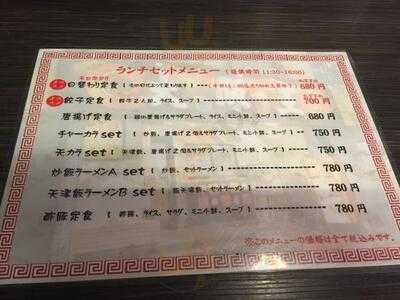 ランチセットメニュー ( 提供時間 11:30~16:00)
日替わり定食 680円
餃子定食 ( 餃子2人前、ライス、スープ ) 700円
唐揚げ定食 680円
チャーカラ set ( 炒飯、唐揚げ2個&サラダプレート、ミニ小鉢、スープ ) 750円
天カラ set ( 天津飯、唐揚げ2個&サラダプレート、ミニ小鉢、スープ ) 750円
炒飯ラーメンA set ( 炒飯、セットラーメン ) 780円
天津飯ラーメンB set ( 天津飯、セットラーメン ) 780円
酢豚定食 ( 酢豚、ライス、サラダ、ミニ小鉢、スープ ) 780円
※このメニューの価格は全て税込みです。